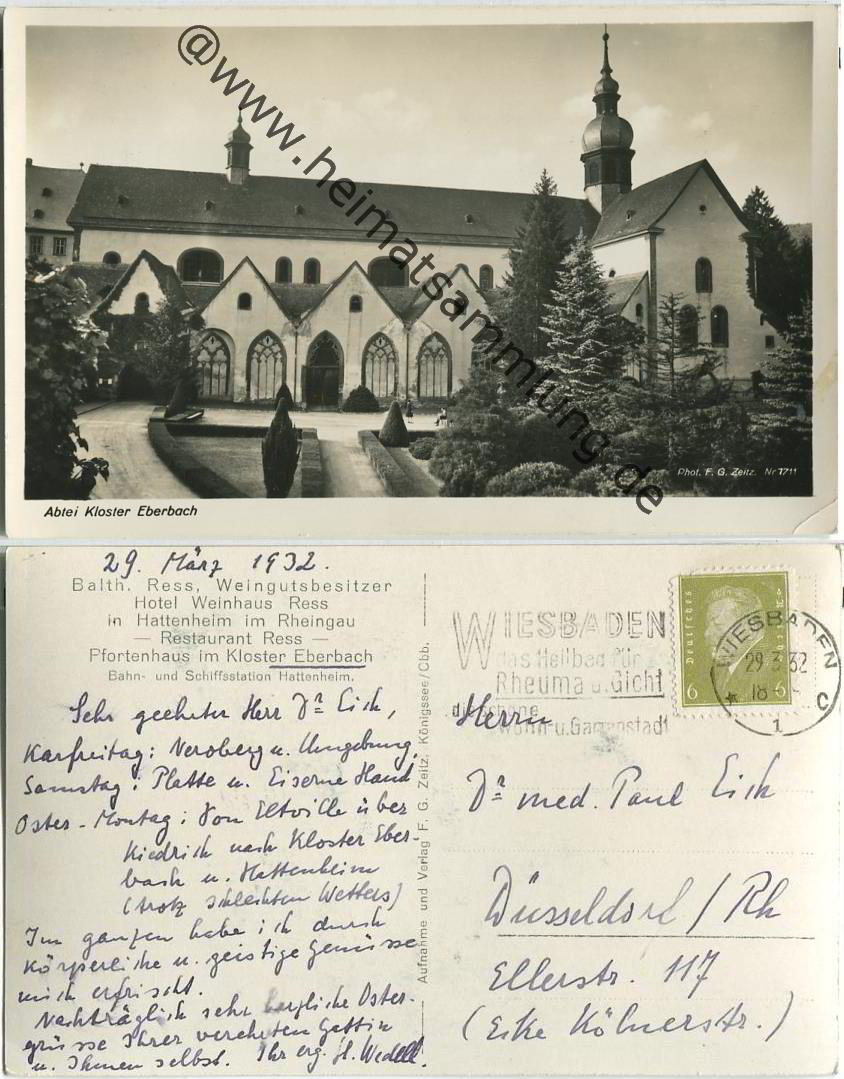 @www.heimatsammlung.de
Phot. F. G. Zeitz. Nr 1711
Abtei Kloster Eberbach
29. März 1932.
Balth. Ress, Weingutsbesitzer
Hotel Weinhaus Ress
in Hattenheim im Rheingau
— Restaurant Ress —
Pfortenhaus im Kloster Eberbach
Bahn- und Schiffsstation Hattenheim.
Sehr geehrter Herr Dr Eick,
Karfreitag: Neroberg u. Umgebung,
Samstag: Platte u. Eiserne Hand
Oster-Montag: Von Eltville über
Kiedrich nach Kloster Eber-
bach u. Hattenheim
(trotz schlechten Wetters)
Im ganzen habe ich durch
körperliche u. geistige Genüsse
mich erfrischt.
Nachträglich sehr herzliche Oster-
grüsse Ihrer verehrten Gattin
u. Ihnen selbst. Ihr erg. H. Wedell.
Aufnahme und Verlag F. G. Zeitz, Königssee/Obb.
WIESBADEN
das Heilbad für
Rheuma u. Gicht
die schöne
Wohn- u. Gartenstadt
Deutsches
Reich
6 6
WIESBADEN
29.3.32
18
* 1 c
Herrn
Dr med. Paul Eick
Düsseldorf / Rh
Ellerstr. 117
(Ecke Kölnerstr.)